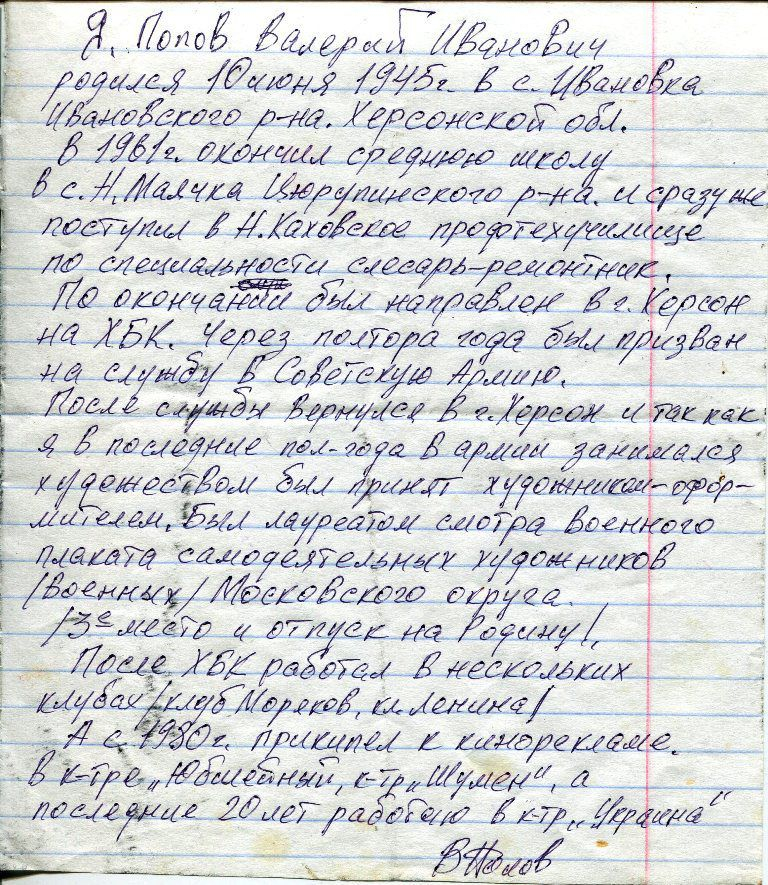 Я, Попов Валерий Иванович
родился 10 июня 1945г. в с. Ивановка
Ивановского р-на. Херсонской обл.
В 1961г. окончил среднюю школу
в с. Н. Маячка Цюрупинского р-на. и сразу же
поступил в Н. Каховское профтехучилище
по специальности слесарь-ремонтник.
По окончании был направлен в г. Херсон
на ХБК. Через полтора года был призван
на службу в Советскую Армию.
После службы вернулся в г. Херсон и так как
я в последние пол-года в армии занимался
художеством был принят художником-офор-
мителем. Был лауреатом смотра военного
плаката самодеятельных художников
/военных/ Московского округа.
/3е место и отпуск на Родину/.
После ХБК работал в нескольких
клубах /клуб Моряков, кл. Ленина/
А с 1980г. прикипел к кинорекламе.
В к-тре „Юбилейный, к-тр „Шумен", а
последние 20 лет работаю в к-тр „Украина"
ВПопов